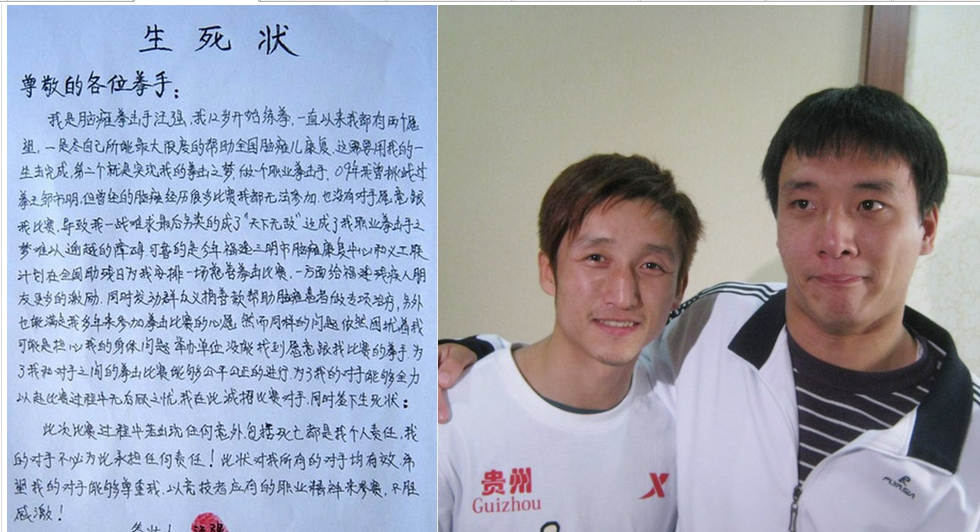 生死状
尊敬的各位拳手：
我是脑瘫拳击手汪强，我12岁开始练拳，一直以来我都有两个愿
望，一是尽自己所能最大限度的帮助全国脑瘫儿康复，这需要用我的一
生去完成，第二个就是实现我的拳击之梦，做个职业拳击手，09年我曾挑战过
拳王邹市明，但曾经的脑瘫经历很多比赛我都无法参加，也没有对手愿意跟
我比赛，导致我一战难求最后另类的成了“天下无敌”这成了我职业拳击手之
梦难以逾越的障碍，可喜的是今年福建三明市脑瘫康复中心和义工联
计划在全国助残日为我安排一场慈善拳击比赛，一方面给福建残疾人朋
友更多的激励，同时发动群众义捐善款帮助脑瘫患者做专项治疗，另外
也能满足我多年来参加拳击比赛的心愿，然而同样的问题依然困扰着我
可能是担心我的身体问题，举办单位没能找到愿意跟我比赛的拳手，为
了我和对手之间的拳击比赛能够公平公正的进行，为了我的对手能够全力
以赴比赛过程中无后顾之忧，我在此诚招比赛对手，同时签下生死状：
此次比赛过程中若出现任何意外包括死亡都是我个人责任，我
的对手不必为此承担任何责任！此状对我所有的对手均有效，希
望我的对手能够尊重我，以竞技者应有的职业精神来参赛，不胜
感激！
汪强
贵州
Guizhou
FLYASIA